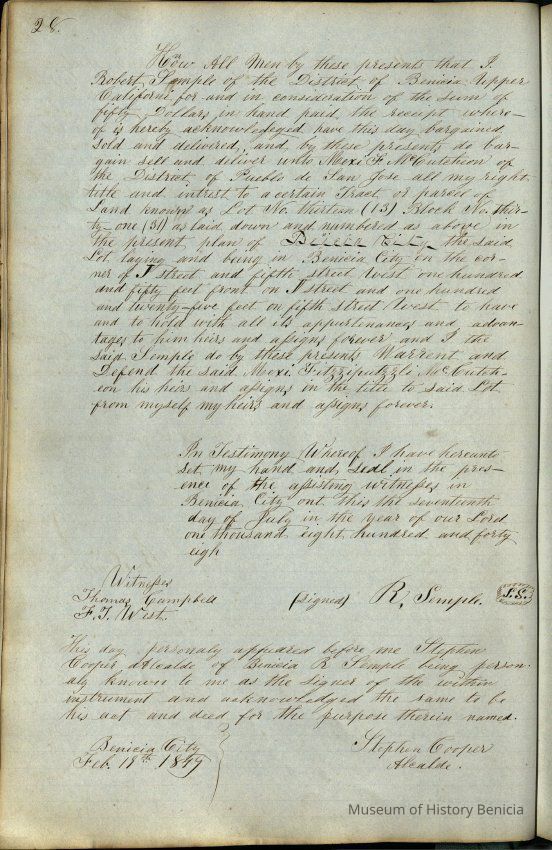 28.
Know All Men by these presents that I
Robert Semple of the District of Benicia Upper
California, for and in consideration of the sum of
fifty Dollars in hand paid the receipt where-
of is hereby acknowledged have this day bargained
sold and delivered, and by these presents do bar-
gain sell and deliver unto Moxi F. McCutcheon of
the District of Pueblo de San Jose all my right
title and intrest to a certain Tract or parcel of
Land known as Lot No. thirteen (13) Block No. thir-
ty-one (31) as laid down and numbered as above in
the present plan of Benicia City the said
Lot laying and being in Benicia City on the cor-
ner of I street and fifth street West one hundred
and fifty feet front on I street and one hundred
and twenty-five feet on fifth street West to have
and to hold with all its appurtenances and advan-
tages to him heirs and assigns forever and I the
said Semple do by these presents Warrent and
Defend the said Moxi McCutch-
eon his heirs and assigns in the title to said Lot
from myself my heirs and assigns forever.
In Testimony Whereof I have hereunto
set my hand and seal in the pres-
ence of the assisting witnesses in
Benicia City on this the seventeenth
day of July in the year of our Lord
one thousand eight hundred and forty
eigh
Witnesses
Thomas Campbell (signed) R. Semple. S.S.
F. J. West.
This day personaly appeared before me Stephen
Cooper Alcalde of Benicia R Semple being person-
aly known to me as the signer of the within
instrument and acknowledged the same to be
his act and deed for the purpose therein named.
Benicia City Stephen Cooper
Feb. 19th 1849 Alcalde.
Museum of History Benicia